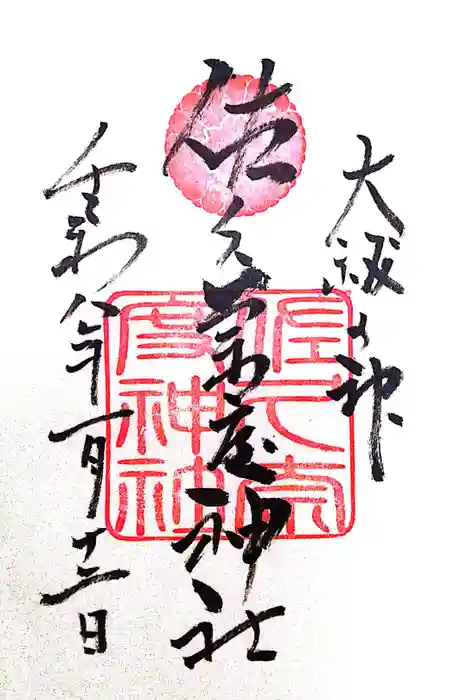 大祓の神
佐久奈度神社
令和八年一月十二日
佐久奈
度神社